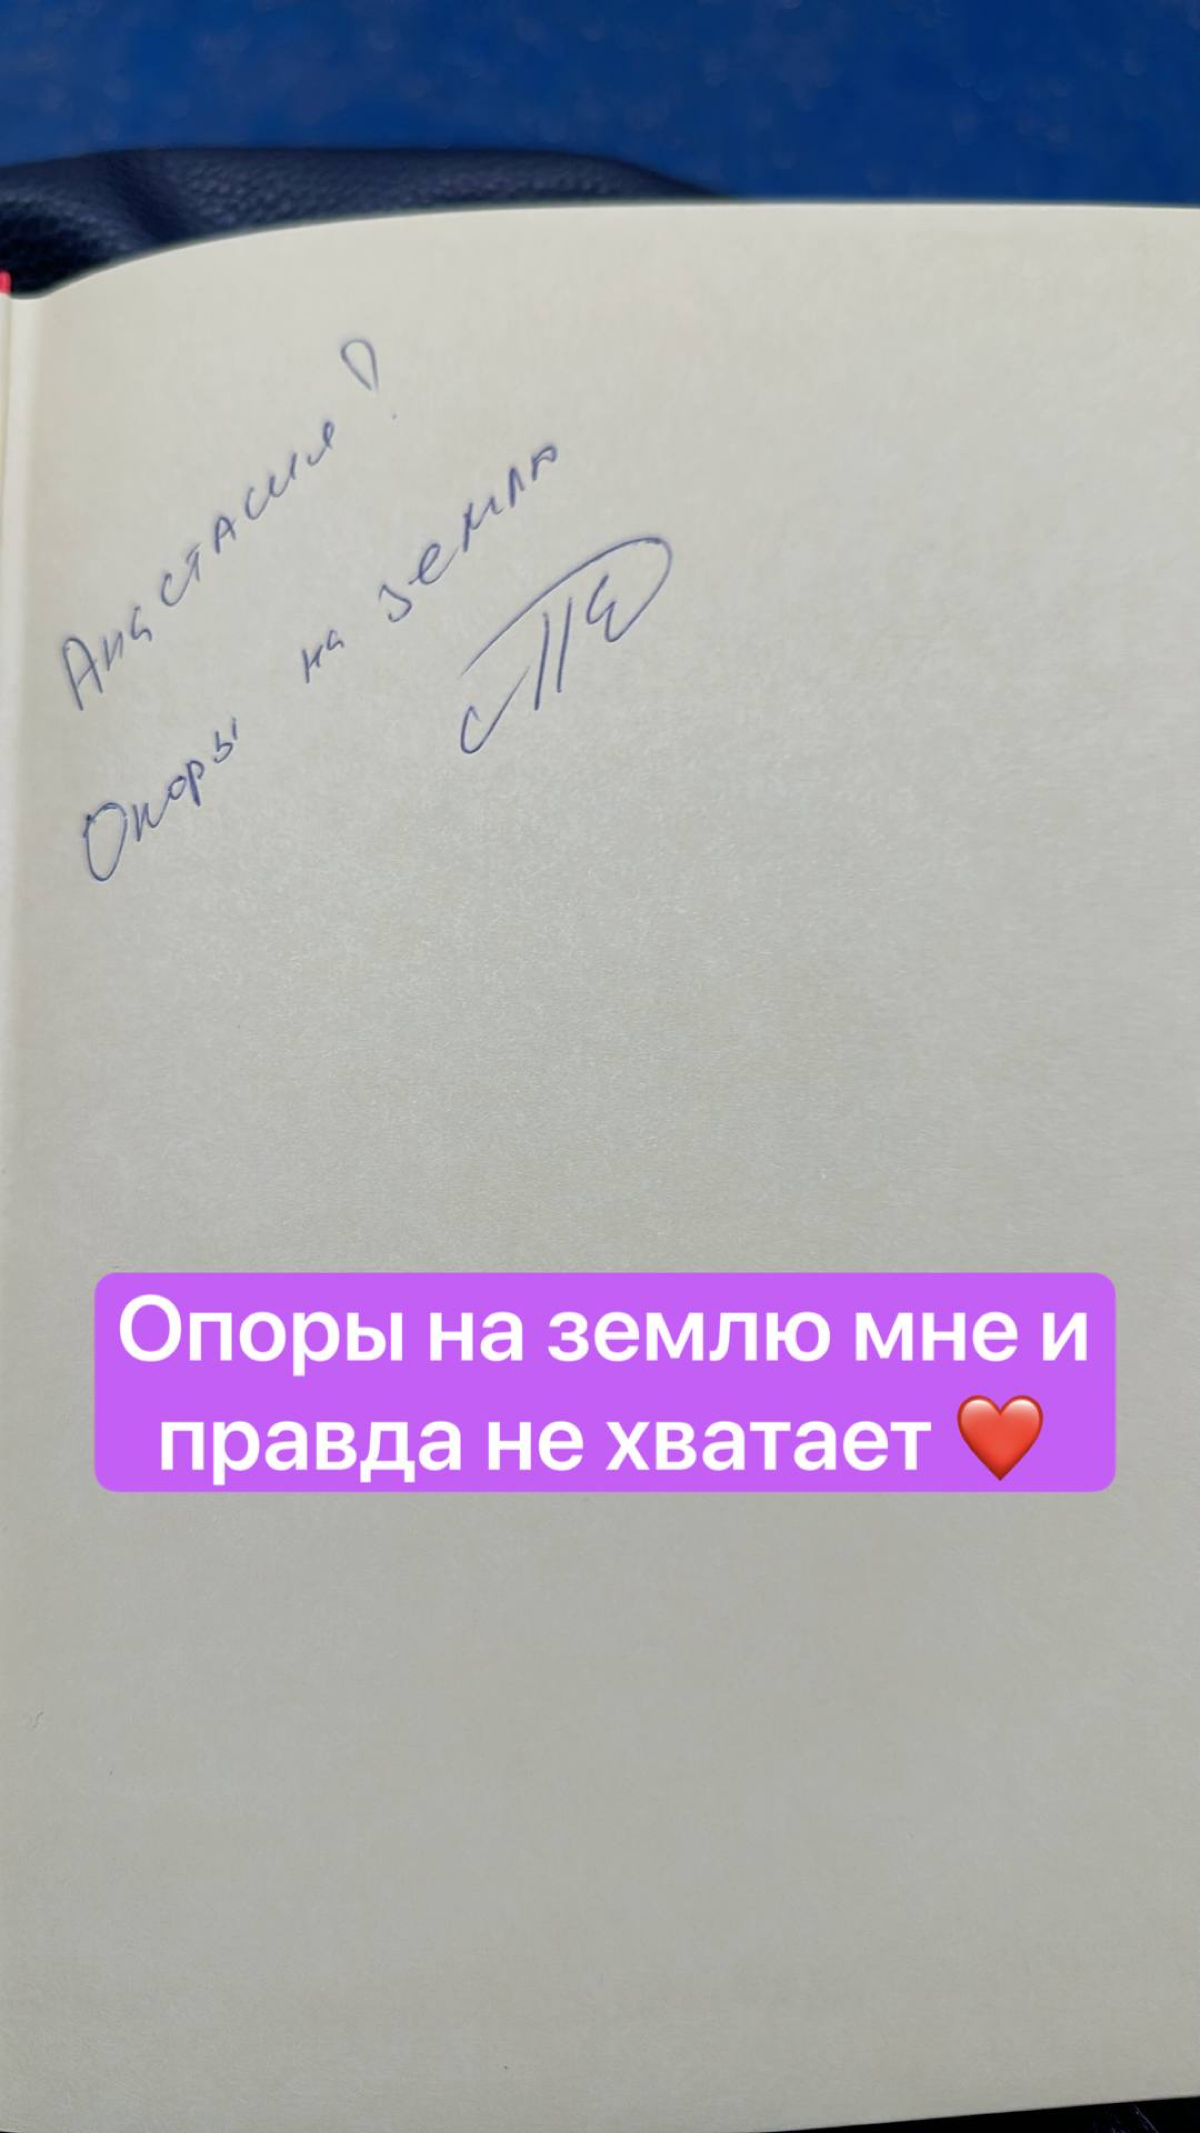 Анастасия!
Опоры на землю
Опоры на землю мне и
правда не хватает ❤️